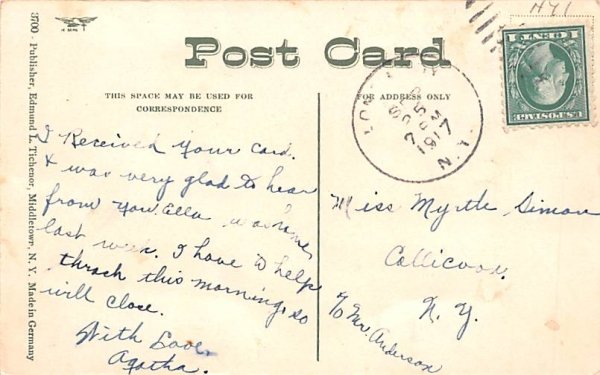 HY1
Post Card
THIS SPACE MAY BE USED FOR
CORRESPONDENCE
FOR ADDRESS ONLY
U.S. POSTAGE
1 CENT 1
SEP 25
PM
1917
N.Y.
3700 - Publisher, Edmund L. Tichenor, Middletown, N. Y. Made in Germany
I Received your card.
& was very glad to hear
from you. Ella was home
last week. I have to help
thrash this morning, so
will close.
With Love,
Agatha.
Miss Myrtle Simon
Callicoon.
N. Y.
% Mr. Anderson